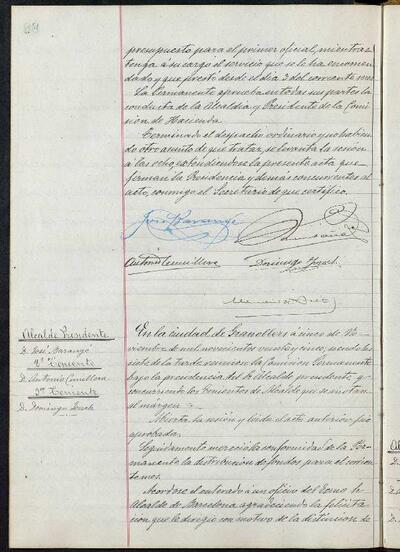 presupuesto para el primer oficial, mientras
tenga á su cargo el servicio que se le ha encomen
dado y que prestó desde el día 3 del corriente mes
La Permanente aprueba en todas sus partes la
conducta de la Alcaldía y Presidente de la Comi
sion de Hacienda.
Terminado el despacho ordinario y no habien
do otro asunto de que tratar, se levanta la sesión
á las ocho, extendiendose la presente acta que
firman la Presidencia y demás concurrentes al
acto, conmigo el Secretario de que certifico.
José Barangé
Antonio Cumellera
Domingo
Alcalde Presidente
D. José Barangé
2º Teniente
D. Antonio Cumellera
3er Teniente
D. Domingo
En la ciudad de Granollers á cinco de No
viembre de mil novecientos veinte y cinco, siendo las
siete de la tarde reunióse la Comisión Permanente
bajo la presidencia del Sr Alcalde presidente, y
concurriendo los Tenientes de Alcalde que se anotan
al margen.
Abierta la sesión y leida el acta anterior fué
aprobada.
Seguidamente mereció la conformidad de la Per
manente la distribución de fondos para el corriente
mes.
Acordose el enterado á un oficio del Excmo Sr
Alcalde de Barcelona agradeciendo la felicita
cion que le dirigió con motivo de la distincion de